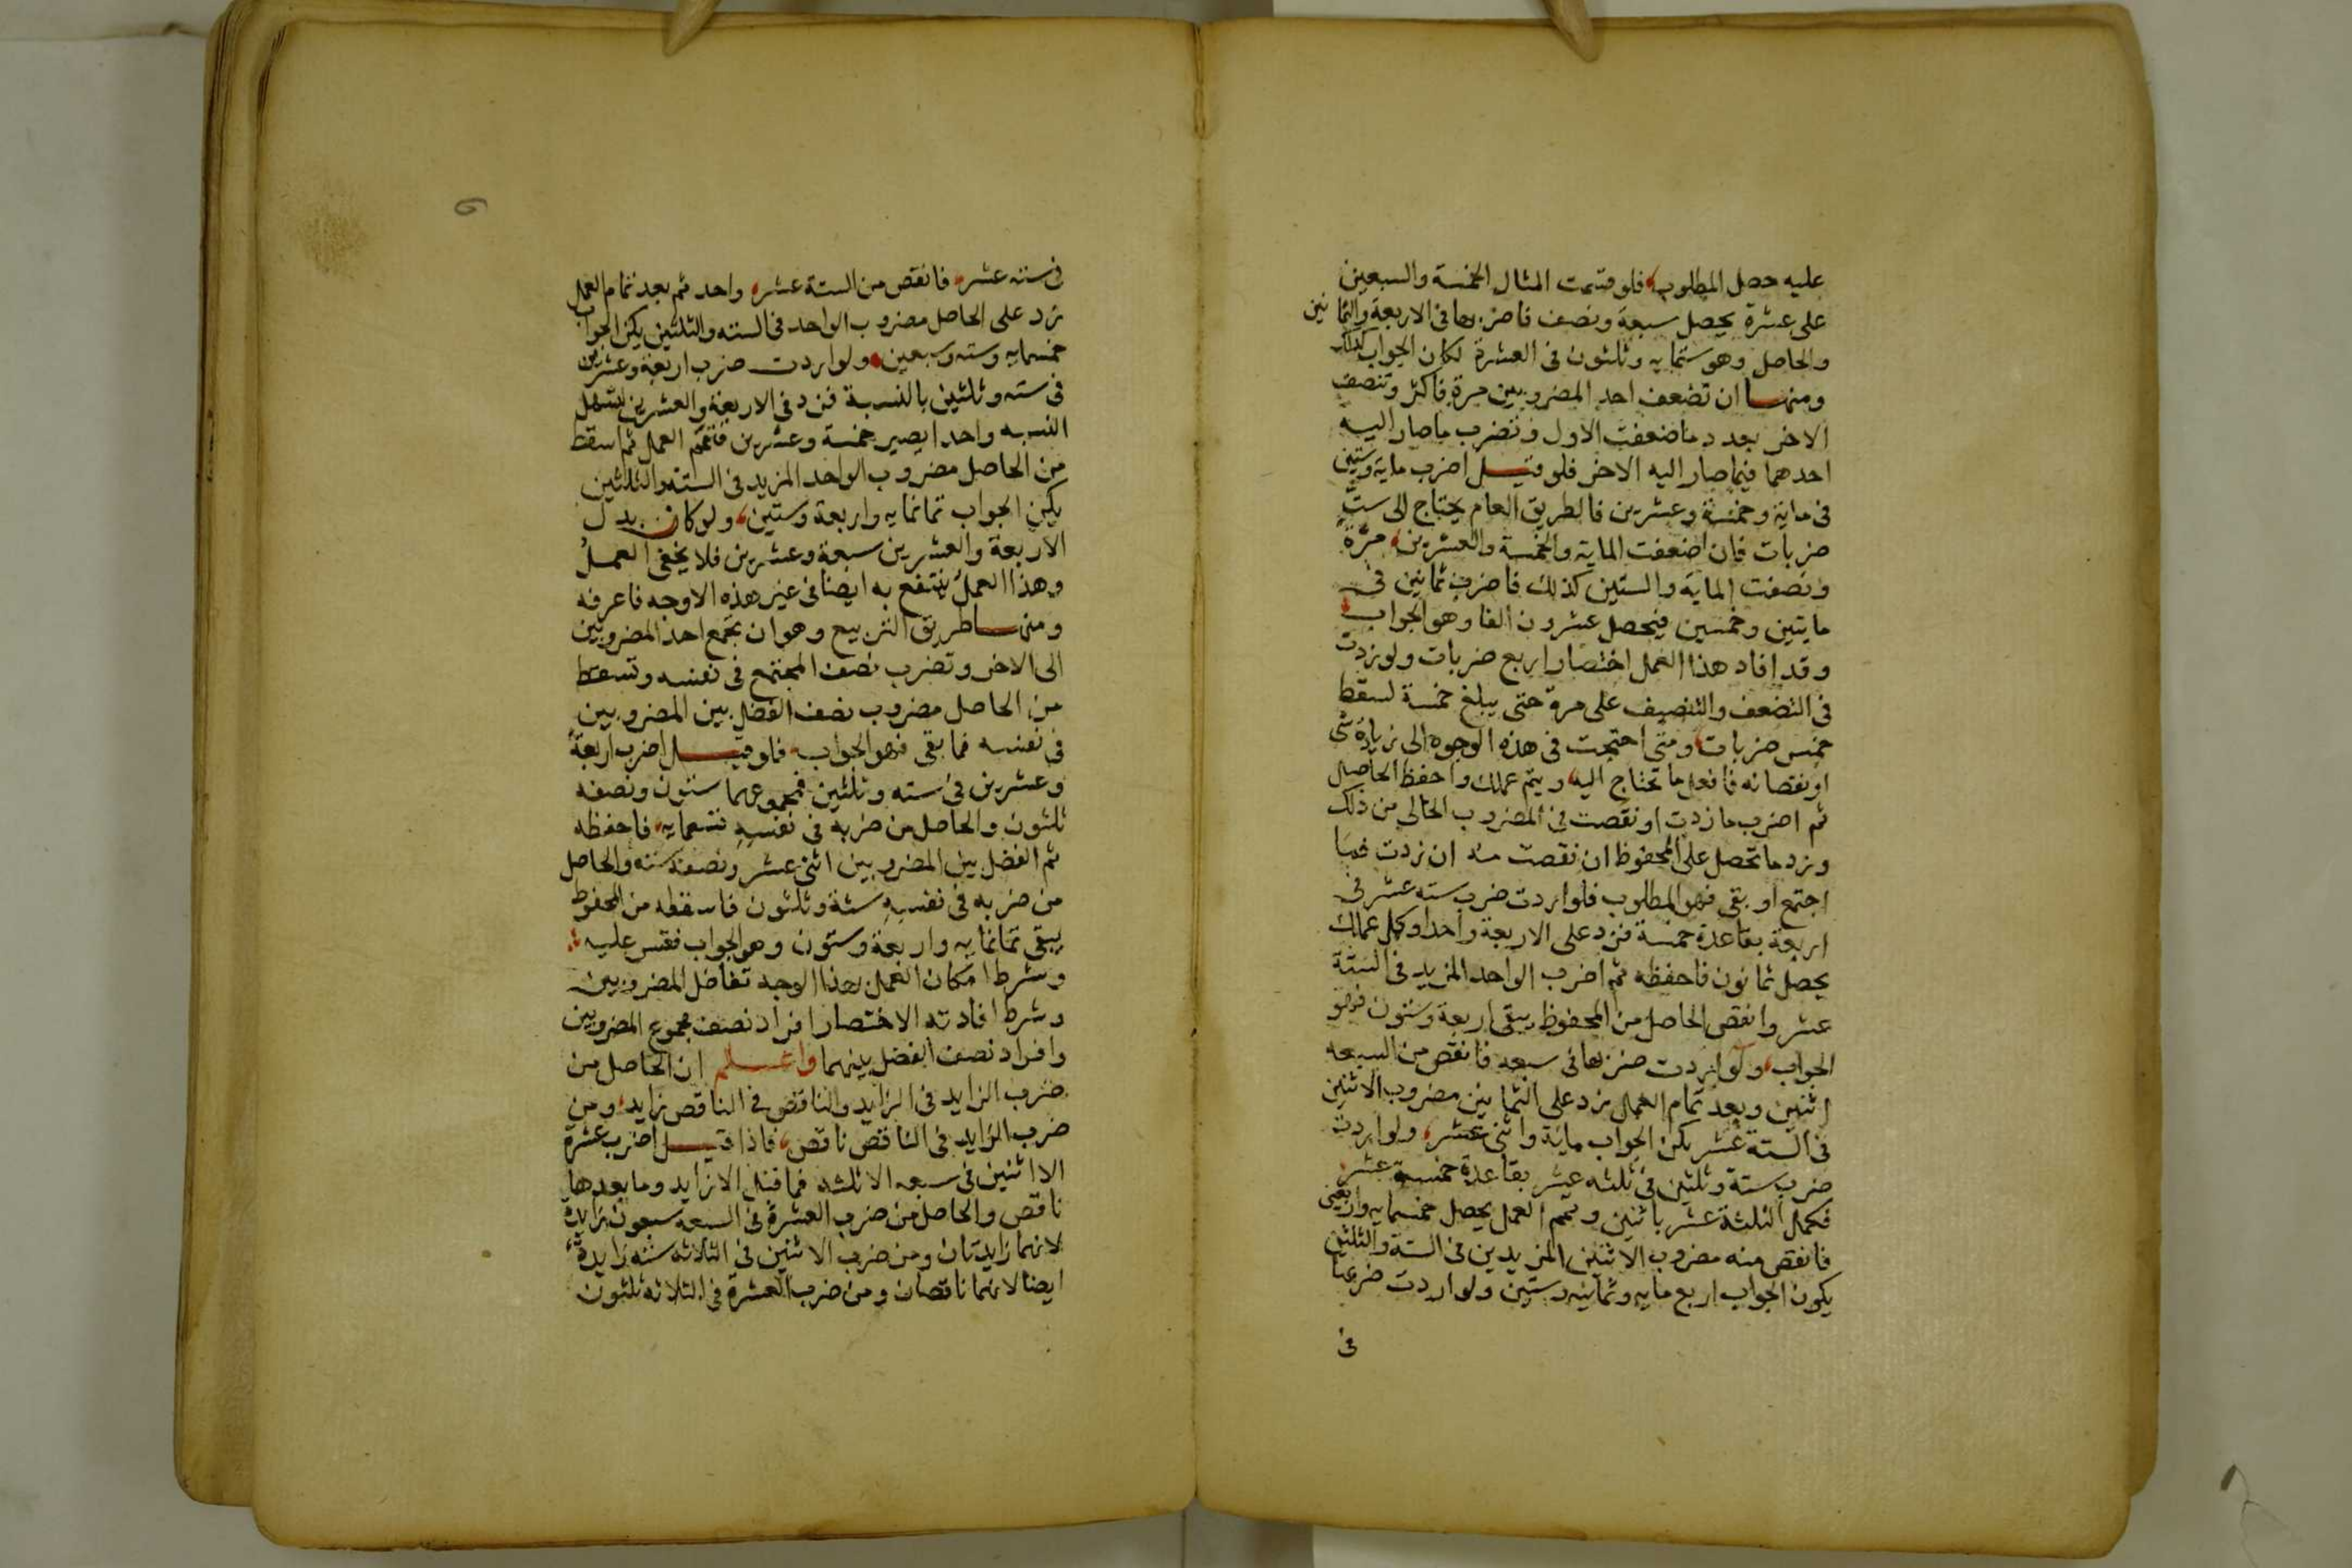 عليه حصل المطلوب فلو قسمت المثال الخمسة والسبعين
على عشرة يحصل سبعة ونصف فاضربها فى الاربعة والثمانين
والحاصل وهو ستمايه وثلثون فى العشرة لكان الجواب كذلك
ومنها ان تضعف احد المضروبين مرة فاكثر وتنصف
الاخر بعدد ما ضعفت الاول وتضرب ما صار اليه
احدهما فيما صار اليه الاخر فلو قيل اضرب ماية وستين
فى ماية وخمسة وعشرين فالطريق العام يحتاج الى ست
ضربات فان اضعفت الماية والخمسة والعشرين مرة
ونصفت الماية والستين كذلك فاضرب ثمانين فى
مايتين وخمسين فيحصل عشرون الفا وهو الجواب
وقد افاد هذا العمل اختصار اربع ضربات ولو زدت
فى التضعف والتنصيف على مرة حتى يبلغ خمسة لسقط
خمس ضربات ومتى احتجت فى هذه الوجوه الى زيادة شى
او نقصانه فافعل ما تحتاج اليه ويتم عملك واحفظ الحاصل
ثم اضرب ما زدت او نقصت فى المضروب الخالى من ذلك
وزد ما تحصل على المحفوظ ان نقصت منه ان زدت فما
اجتمع او بقى فهو المطلوب فلو اردت ضرب سته عشر فى
اربعة بقاعدة خمسة فزد على الاربعة واحدا وكمل عملك
يحصل ثمانون فاحفظه ثم اضرب الواحد المزيد فى الستة
عشر وانقص الحاصل من المحفوظ يبقى اربعة وستون فهو
الجواب ولو اردت ضربها فى سبعه فانقص من السبعه
اثنين وبعد تمام العمل زد على الثمانين مضروب الاثنين
فى الستة عشر يكن الجواب ماية واثنى عشر ولو اردت
ضرب ستة وثلثين فى ثلثه عشر بقاعدة خمسة عشر
فكمل الثلثة عشر باثنين وتمم العمل يحصل خمسمايه واربعين
فانقص منه مضروب الاثنين المزيدين فى الستة والثلثين
يكون الجواب اربع مايه وثمانيه وستين ولو اردت ضربها
فى
فى سته عشر فانقص من الستة عشر واحد ثم بعد تمام العمل
زد على الحاصل مضروب الواحد فى السته والثلثين يكن الجواب
خمسمايه وسته وسبعين ولو اردت ضرب اربعة وعشرين
فى سته وثلثين بالنسبة فزد فى الاربعة والعشرين لتسهل
النسبه واحدا يصير خمسة وعشرين فتمم العمل ثم اسقط
من الحاصل مضروب الواحد المزيد فى الستة والثلاثين
يكن الجواب ثمانمايه واربعة وستين ولو كان بدل
الاربعة والعشرين سبعة وعشرين فلا يخفى العمل
وهذا العمل ينتفع به ايضا فى غير هذه الاوجه فاعرفه
ومنها طريق التربيع وهو ان تجمع احد المضروبين
الى الاخر وتضرب نصف المجتمع فى نفسه وتسقط
من الحاصل مضروب نصف الفضل بين المضروبين
فى نفسه فما بقى فهو الجواب فلو قيل اضرب اربعة
وعشرين فى سته وثلثين فمجموعهما ستون ونصفه
ثلثون والحاصل من ضربه فى نفسه تسعمايه فاحفظه
ثم الفضل بين المضروبين اثنى عشر ونصفه سته والحاصل
من ضربه فى نفسه ستة وثلثون فاسقطه من المحفوظ
يبقى ثمانمايه واربعة وستون وهو الجواب فقس عليه
وشرط امكان العمل بهذا الوجه تفاضل المضروبين
وشرط افادته الاختصار افراد نصف مجموع المضروبين
وافراد نصف الفضل بينهما واعلم ان الحاصل من
ضرب الزايد فى الزايد والناقص فى الناقص زايد ومن
ضرب الزايد فى الناقص ناقص فاذا قيل اضرب عشرة
الا اثنين فى سبعه الا ثلثه فما قبل الا زايد وما بعدها
ناقص والحاصل من ضرب العشرة فى السبعه سبعون زايدة
لانهما زايدتان ومن ضرب الاثنين فى الثلاثه سته زايدة
ايضا لانهما ناقصان ومن ضرب العشرة فى الثلاثه ثلثون